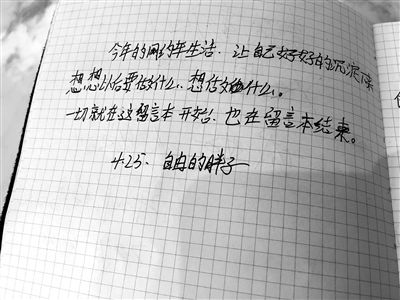 今年的网约车生活，让自己好好的沉淀下来
想想以后要做什么，想信文他什么。
一切就在这留言本开始，也在留言本结束。
4.25. 自由的胖子